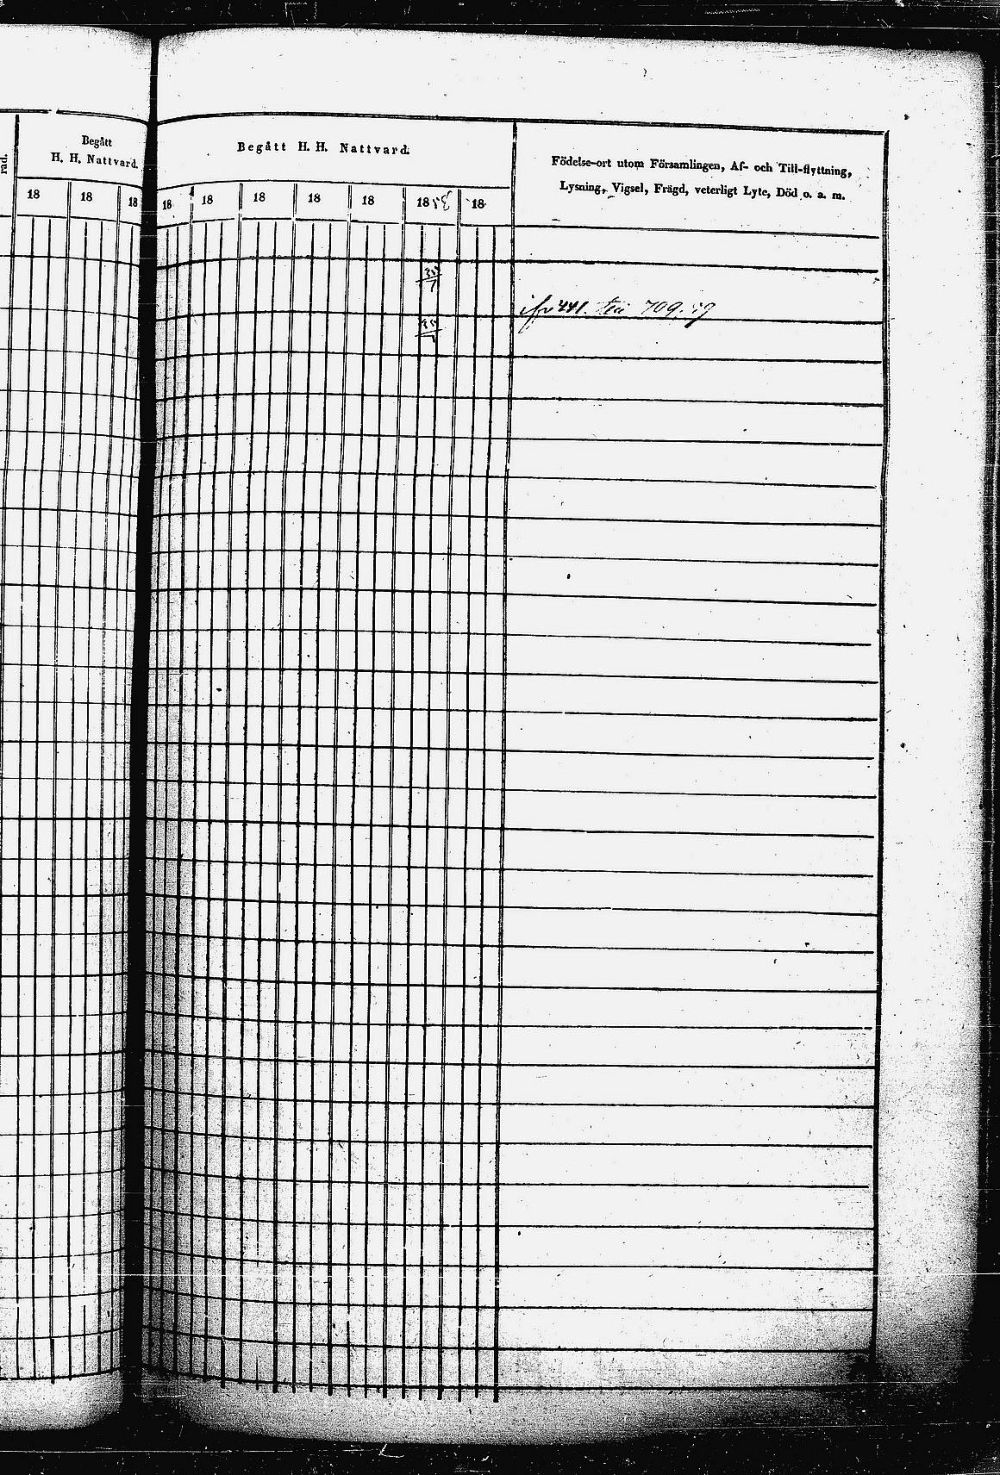 rad.
Begått
H. H. Nattvard.
18 18 18
Begått H. H. Nattvard.
18 18 18 18 18 1858 18
Födelse-ort utom Församlingen, Af- och Till-flyttning,
Lysning, Vigsel, Frägd, veterligt Lyte, Död o. a. m.
441. 709.